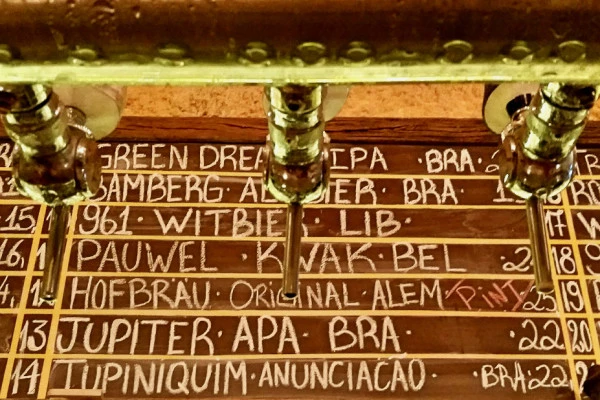 GREEN DREAM IPA · BRA · 2
BAMBERG BRA · 1 18 RO
15, 961 · WITBIER · LIB · 17 W
16, 1 PAUWEL · KWAK · BEL · 2 18 S
4, 1 HOFBRÄU · ORIGINAL · ALEM PINT 25 19
13 JUPITER · APA · BRA · · 22 20
14 TUPINIQUIM · ANUNCIACAO · · BRA · 22 2